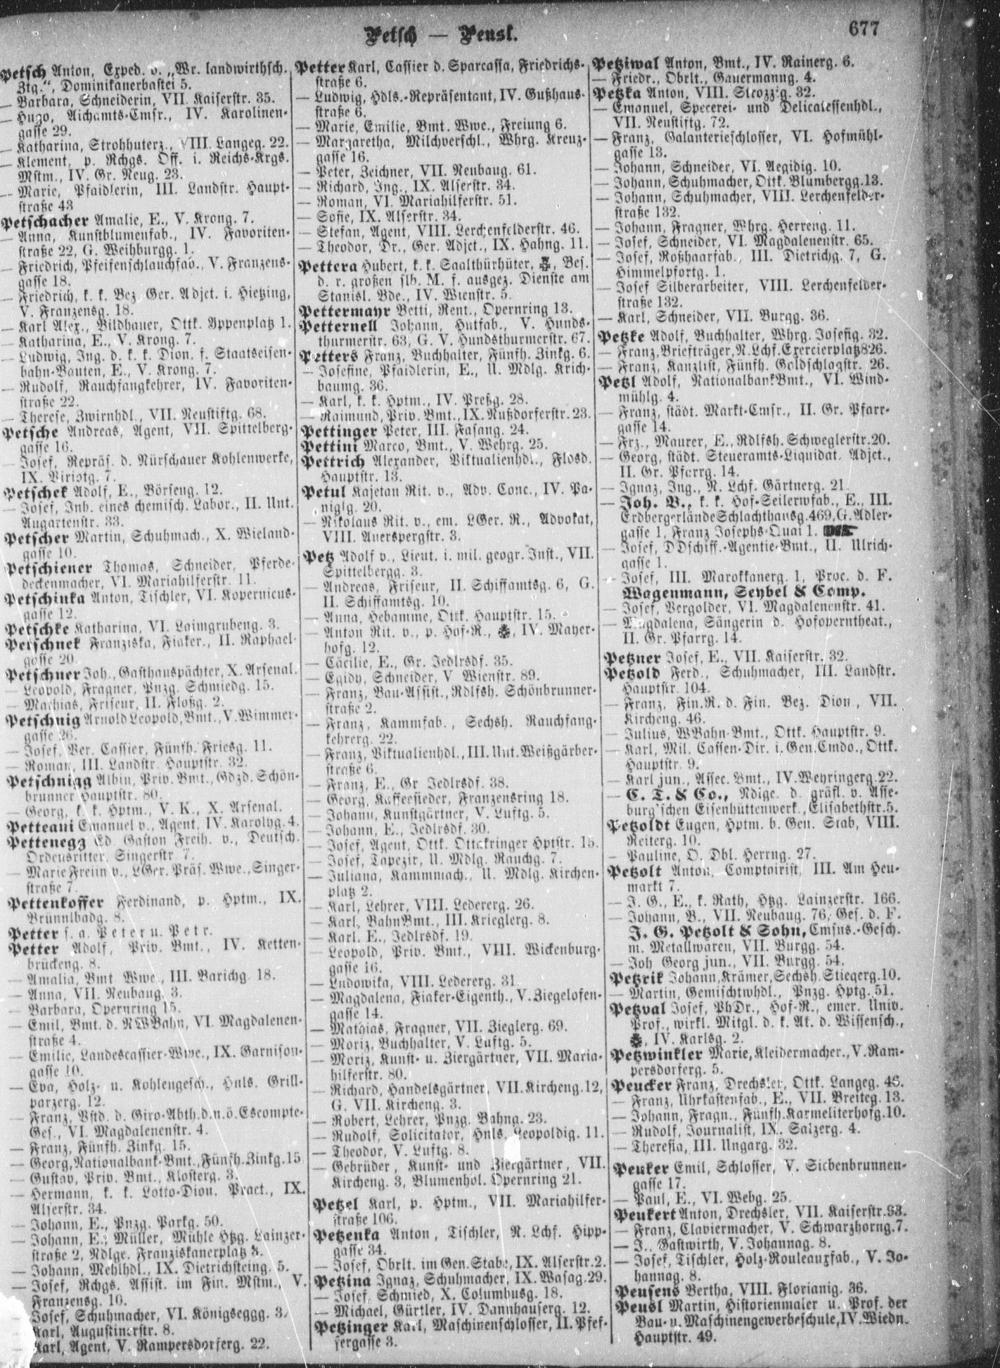 Petsch — Peusl.
677
Petsch Anton, Exped. d. „Wr. landwirthsch.
Ztg.“, Dominikanerbastei 5.
— Barbara, Schneiderin, VII. Kaiserstr. 35.
— Hugo, Aichamts-Cmsr., IV. Karolinen-
gasse 29.
— Katharina, Strohhuterz., VIII. Langeg. 22.
— Klement, p. Rchgs. Off. i. Reichs-Krgs.
Mstm., IV. Gr. Neug. 23.
— Marie, Pfaidlerin, III. Landstr. Haupt-
straße 43
Petschacher Amalie, E., V. Krong. 7.
— Anna, Kunstblumenfab., IV. Favoriten-
straße 22, G. Weihburgg. 1.
— Friedrich, Pfeifenschlauchfab., V. Franzens-
gasse 18.
— Friedrich, k. k. Bez. Ger. Adjct. i. Hietzing,
V. Franzensg. 18.
— Karl Alex., Bildhauer, Ottk. Eppenplatz 1.
— Katharina, E., V. Krong. 7.
— Ludwig, Ing. d. k. k. Dion. f. Staatseisen-
bahn-Bauten, E., V. Krong. 7.
— Rudolf, Rauchfangkehrer, IV. Favoriten-
straße 22.
— Therese, Zwirnhdl., VII. Neustiftg. 68.
Petsche Andreas, Agent, VII. Spittelberg-
gasse 16.
— Josef, Repräs. d. Nürschauer Kohlenwerke,
IX. Viriotg. 7.
Petschek Adolf, E., Börseng. 12.
— Josef, Inh. eines chemisch. Labor., II. Unt.
Augartenstr. 33.
Petscher Martin, Schuhmach., X. Wieland-
gasse 10.
Petschiener Thomas, Schneider, Pferde-
deckenmacher, VI. Mariahilferstr. 11.
Petschinka Anton, Tischler, VI. Kopernicus-
gasse 12.
Petschke Katharina, VI. Laimgrubeng. 3.
Petschnek Franziska, Fiaker., II. Raphael-
gasse 20.
Petschner Joh., Gasthauspächter, X. Arsenal.
— Leopold, Fragner, Pnzg. Schmiedg. 15.
— Mathias, Friseur, II. Floßg. 2.
Petschnig Arnold Leopold, Bmt., V. Wimmer-
gasse 26.
— Josef, Ver. Cassier, Fünfh. Friesg. 11.
— Roman, III. Landstr. Hauptstr. 32.
Petschnigg Albin, Priv. Bmt., Gdzd. Schön-
brunner Hauptstr. 80.
— Georg, k. k. Hptm., V. K., X. Arsenal.
Petteani Emanuel v., Agent, IV. Karolyg. 4.
Pettenegg Ed. Gaston Freih. v., Deutsch.
Ordensritter, Singerstr 7.
— Marie Freiin v., LGer. Präs. Wwe., Singer-
straße 7.
Pettenkoffer Ferdinand, p. Hptm., IX.
Brünnlbadg. 8.
Petter s. a. Peter u. Petr.
Petter Adolf, Priv. Bmt., IV. Ketten-
brückeng. 8.
— Amalia, Bmt Wwe., III. Barichg. 18.
— Anna, VII. Neubaug. 3.
— Barbara, Opernring 15.
— Emil, Bmt. d. NWBahn, VI. Magdalenen-
straße 4.
— Emilie, Landescassier-Wwe., IX. Garnison-
gasse 10.
— Eva, Holz- u. Kohlengesch., Hnls. Grill-
parzerg. 12.
— Franz, Vstd. d. Giro-Abth. d. n.ö. Escompte-
Ges., VI. Magdalenenstr. 4.
— Franz, Fünfh. Zinkg. 15.
— Georg, Nationalbank-Bmt., Fünfh. Zinkg. 15
— Gustav, Priv. Bmt., Klosterg. 3.
— Hermann, k. k. Lotto-Dion. Pract., IX.
Alserstr. 34.
— Johann, E., Pnzg. Parkg. 50.
— Johann, E., Müller, Mühle Htzg. Lainzer-
straße 2, Ndlge. Franziskanerplatz 3.
— Johann, Mehlhdl., IX. Dietrichsteing. 5.
— Josef, Rchgs. Assist. im Fin. Mstm., V.
Franzensg. 10.
Josef, Schuhmacher, VI. Königseggg. 3.
Karl, Augustinerstr. 8.
Karl, Agent, V. Rampersdorferg. 22.
Petter Karl, Cassier d. Sparcassa, Friedrichs-
straße 6.
— Ludwig, Hdls.-Repräsentant, IV. Gußhaus-
straße 6.
— Marie, Emilie, Bmt. Wwe., Freiung 6.
— Margaretha, Milchverschl., Whrg. Kreuz-
gasse 16.
— Peter, Zeichner, VII. Neubaug. 61.
— Richard, Ing., IX. Alserstr. 34.
— Roman, VI. Mariahilferstr. 51.
— Sofie, IX. Alserstr. 34.
— Stefan, Agent, VIII. Lerchenfelderstr. 46.
— Theodor, Dr., Ger. Adjct., IX. Hahng. 11.
Pettera Hubert, k. k. Saalthürhüter, Bes.
d. r. großen slb. M. f. ausgez. Dienste am
Stanisl. Bde., IV. Wienstr. 5.
Pettermayr Betti, Rent., Opernring 13.
Petternell Johann, Hutfab., V. Hunds-
thurmerstr. 63, G. V. Hundsthurmerstr. 67.
Petters Franz, Buchhalter, Fünfh. Zinkg. 6.
— Josefine, Pfaidlerin, E., U. Mdlg. Krich-
baumg. 36.
— Karl, k. k. Hptm., IV. Preßg. 28.
— Raimund, Priv. Bmt., IX. Nußdorferstr. 23.
Pettinger Peter, III. Fasang. 24.
Pettini Marco, Bmt., V. Wehrg. 25.
Pettrich Alexander, Viktualienhdl., Flosd.
Hauptstr. 13.
Petul Kajetan Rit. v., Adv. Conc., IV. Pa-
niglg. 20.
— Nikolaus Rit. v., em. LGer. R., Advokat,
VIII. Auerspergstr. 3.
Petz Adolf v., Lieut. i. mil. geogr. Inst., VII.
Spittelbergg. 3.
— Andreas, Friseur, II. Schiffamtsg. 6, G.
II. Schiffamtsg. 10.
— Anna, Hebamme, Ottk. Hauptstr. 15.
— Anton Rit. v., p. Hof-R., IV. Mayer-
hofg. 12.
— Cäcilie, E., Gr. Jedlrsdf. 35.
— Egidy, Schneider, V Wienstr. 89.
— Franz, Bau-Assist., Rdlfsh. Schönbrunner-
straße 2.
— Franz, Kammfab., Sechsh. Rauchfang-
kehrerg. 22.
— Franz, Viktualienhdl., III. Unt. Weißgärber-
straße 6.
— Franz, E., Gr Jedlrsdf. 38.
— Georg, Kaffeesieder, Franzensring 18.
— Johann, Kunstgärtner, V. Luftg. 5.
— Johann, E., Jedlrsdf. 30.
— Josef, Agent, Ottk. Ottakringer Hptstr. 15.
— Josef, Tapezir, U. Mdlg. Rauchg. 7.
— Juliana, Kammmach., U. Mdlg. Kirchen-
platz 2.
— Karl, Lehrer, VIII. Ledererg. 26.
— Karl, BahnBmt., III. Krieglerg. 8.
— Karl, E., Jedlrsdf. 19.
— Leopold, Priv. Bmt., VIII. Wickenburg-
gasse 16.
— Ludowika, VIII. Ledererg. 31
— Magdalena, Fiaker-Eigenth., V. Ziegelofen-
gasse 14.
— Mathias, Fragner, VII. Zieglerg. 69.
— Moriz, Buchhalter, V. Luftg. 5.
— Moriz, Kunst- u. Ziergärtner, VII. Maria-
hilferstr. 80.
— Richard, Handelsgärtner, VII. Kircheng. 12,
G. VII. Kircheng. 3.
— Robert, Lehrer, Pnzg. Bahng. 23.
— Rudolf, Solicitator, Hnls. Leopoldig. 11.
— Theodor, V. Luftg. 8.
— Gebrüder, Kunst- und Ziergärtner, VII.
Kircheng. 3, Blumenhdl. Opernring 21.
Petzel Karl, p. Hptm., VII. Mariahilfer-
straße 106.
Petzenka Anton, Tischler, N. Lchf. Hipp-
gasse 34.
— Josef, Obrlt. im Gen. Stabe, IX. Alserstr. 2.
Petzina Ignaz, Schuhmacher, IX. Wasag. 29.
— Josef, Schmied, X. Columbusg. 18.
— Michael, Gürtler, IV. Dannhauserg. 12.
Petzinger Karl, Maschinenschlosser, II. Pfef-
fergasse 3.
Petziwal Anton, Bmt., IV. Rainerg. 6.
— Friedr., Obrlt., Gauermanng. 4.
Petzka Anton, VIII. Skodag. 32.
— Emanuel, Specerei- und Delicatessenhdl.,
VII. Neustiftg. 72.
— Franz, Galanterieschlosser, VI. Hofmühl-
gasse 13.
— Johann, Schneider, VI. Aegidig. 10.
— Johann, Schuhmacher, Ottk. Blumbergg. 13.
— Johann, Schuhmacher, VIII. Lerchenfelder-
straße 132.
— Johann, Fragner, Whrg. Herreng. 11.
— Josef, Schneider, VI. Magdalenenstr. 65.
— Josef, Roßhaarfab., III. Dietrichg. 7, G.
Himmelpfortg. 1.
— Josef Silberarbeiter, VIII. Lerchenfelder-
straße 132.
— Karl, Schneider, VII. Burgg. 36.
Petzke Adolf, Buchhalter, Whrg. Josefig. 32.
— Franz, Briefträger, N. Lchf. Exercierplatz 826.
— Franz, Kanzlist, Fünfh. Goldschlagstr. 26.
Petzl Adolf, NationalbankBmt., VI. Wind-
mühlg. 4.
— Franz, städt. Markt-Cmsr., II. Gr. Pfarr-
gasse 14.
— Frz., Maurer, E., Rdlfsh. Schweglerstr. 20.
— Georg, städt. Steueramts-Liquidat. Adjct.,
II. Gr. Pfarrg. 14.
— Ignaz, Ing., N. Lchf. Gärtnerg. 21.
— Joh. B., k. k. Hof-Seilerwfab., E., III.
Erdbergerlände Schlachthausg. 469, G. Adler-
gasse 1, Franz Josephs-Quai 1.
— Josef, DDschiff.-Agentie-Bmt., II. Ulrich-
gasse 1.
— Josef, III. Marokkanerg. 1, Proc. d. F.
Wagenmann, Seybel & Comp.
— Josef, Vergolder, VI. Magdalenenstr. 41.
— Magdalena, Sängerin d. Hofoperntheat.,
II. Gr. Pfarrg. 14.
Petzner Josef, E., VII. Kaiserstr. 32.
Petzold Ferd., Schuhmacher, III. Landstr.
Hauptstr. 104.
— Franz, Fin. R. d. Fin. Bez. Dion, VII.
Kircheng. 46.
— Julius, WBahn-Bmt., Ottk. Hauptstr. 9.
— Karl, Mil. Cassen-Dir. i. Gen. Cmdo., Ottk.
Hauptstr. 9.
— Karl jun., Assec. Bmt., IV. Weyringerg. 22.
— C. T. & Co., Ndlge. d. gräfl. v. Asse-
burg'schen Eisenhüttenwerk., Elisabethstr. 5.
Petzoldt Eugen, Hptm. b. Gen. Stab, VIII.
Reiterg. 10.
— Pauline, O. Dbl. Herrng. 27.
Petzolt Anton, Comptoirist, III. Am Heu-
markt 7.
— J. G., E., k. Rath, Htzg. Lainzerstr. 166.
— Johann, B., VII. Neubaug. 76, Ges. d. F.
J. G. Petzolt & Sohn, Cmsns.-Gesch.
m. Metallwaren, VII. Burgg. 54.
— Joh Georg jun., VII. Burgg. 54.
Petzrik Johann, Krämer, Sechsh. Stiegerg. 10.
— Martin, Gemischtwhdl., Pnzg. Hptg. 51.
Petzval Josef, PhDr., Hof-R., emer. Univ.
Prof., wirkl. Mitgl. d. k. Ak. d. Wissensch.,
IV. Karlsg. 2.
Petzwinkler Marie, Kleidermacher., V. Ram-
persdorferg. 5.
Peucker Franz, Drechsler, Ottk. Langeg. 45.
— Franz, Uhrkastenfab., E., VII. Breiteg. 13.
— Johann, Fragn., Fünfh. Karmeliterhofg. 10.
— Rudolf, Journalist, IX. Salzerg. 4.
— Theresia, III. Ungarg. 32.
Peuker Emil, Schlosser, V. Siebenbrunnen-
gasse 17.
— Paul, E., VI. Webg. 25.
Peukert Anton, Drechsler, VII. Kaiserstr. 83.
— Franz, Claviermacher, V. Schwarzhorng. 7.
— J., Gastwirth, V. Johannag. 8.
— Josef, Tischler, Holz-Rouleauxfab., V. Jo-
hannag. 8.
Peusens Bertha, VIII. Florianig. 36.
Peusl Martin, Historienmaler u. Prof. der
Bau- u. Maschinengewerbeschule, IV. Wiedn.
Hauptstr. 49.